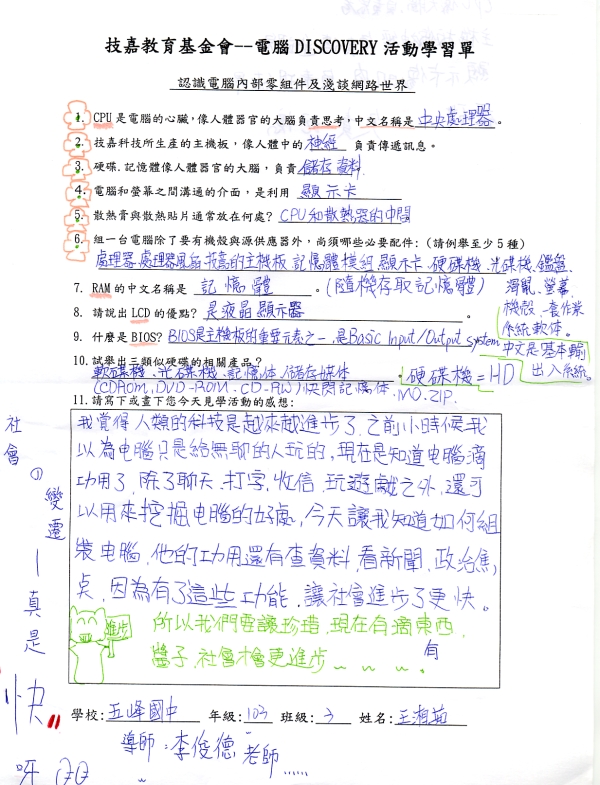 技嘉教育基金會--電腦 DISCOVERY 活動學習單
認識電腦內部零組件及淺談網路世界
1. CPU 是電腦的心臟，像人體器官的大腦負責思考，中文名稱是 中央處理器。
2. 技嘉科技所生產的主機板，像人體中的 神經 負責傳遞訊息。
3. 硬碟.記憶體像人體器官的大腦，負責 儲存資料
4. 電腦和螢幕之間溝通的介面，是利用 顯示卡
5. 散熱膏與散熱貼片通常放在何處? CPU和散熱器的中間
6. 組一台電腦除了要有機殼與源供應器外，尚須哪些必要配件：(請例舉至少 5 種)
處理器、處理器風扇、技嘉的主機板、記憶體模組、顯示卡、硬碟機、光碟機、鍵盤、
滑鼠、螢幕、
機殼、一套作業
系統軟体。
7. RAM 的中文名稱是 記憶體 。(隨機存取記憶體)
8. 請說出 LCD 的優點? 是液晶顯示器 。
9. 什麼是 BIOS? BIOS是主機板的重要元素之一，是Basic Input/Output system
中文是基本輸
出入系統。
10. 試舉出三類似硬碟的相關產品?
軟碟機、光碟機、記憶体/儲存媒体
(CDRom, DVD-ROM, CD-RW)快閃記憶体、MO、ZIP.
硬碟機=HD
11. 請寫下或畫下您今天見學活動的感想:
我覺得人類的科技是越來越進步了，之前小時候我
以為电腦只是給無聊的人玩的，現在是知道电腦滴
功用了，除了聊天、打字、收信、玩遊戲之外，還可
以用來挖掘电腦的好處，今天讓我知道如何組
裝电腦，他的功用還有查資料、看新聞、政治焦
点，因為有了這些功能，讓社會進步了更快。
進步
所以我們要讓珍惜，現在有滴東西，
醬子，社會才會更進步~~~。
有
社會ㄉ變遷—真是
快
呀
學校: 五峰國中 年級: 103 班級: 3 姓名: 王湘茹
導師：李俊德 老師......